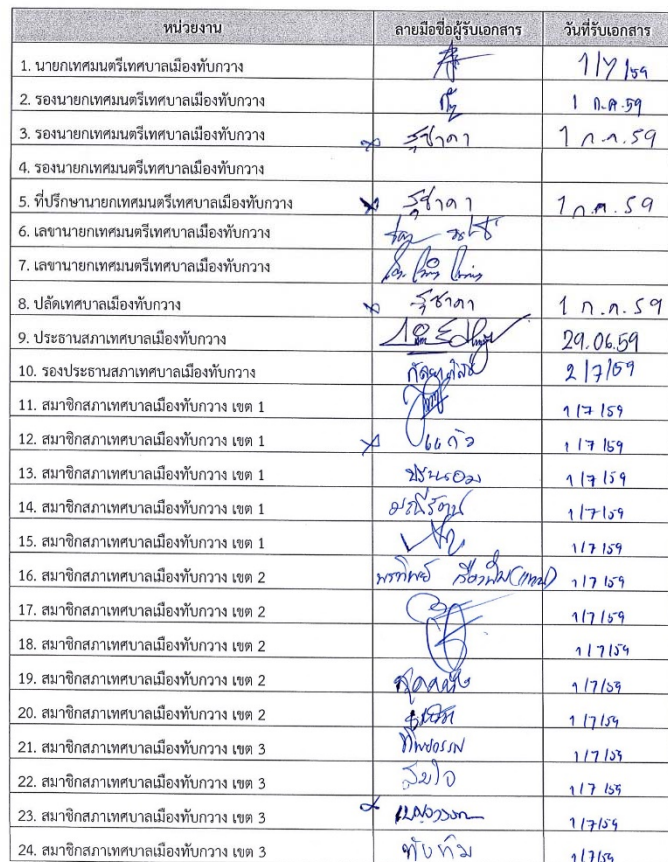 หน่วยงาน ลายมือชื่อผู้รับเอกสาร วันที่รับเอกสาร
1. นายกเทศมนตรีเทศบาลเมืองทับกวาง 1/7/59
2. รองนายกเทศมนตรีเทศบาลเมืองทับกวาง 1 ก.ค.59
3. รองนายกเทศมนตรีเทศบาลเมืองทับกวาง สุชาดา 1 ก.ค.59
4. รองนายกเทศมนตรีเทศบาลเมืองทับกวาง
5. ที่ปรึกษานายกเทศมนตรีเทศบาลเมืองทับกวาง สุชาดา 1 ก.ค.59
6. เลขานายกเทศมนตรีเทศบาลเมืองทับกวาง
7. เลขานายกเทศมนตรีเทศบาลเมืองทับกวาง
8. ปลัดเทศบาลเมืองทับกวาง สุชาดา 1 ก.ค.59
9. ประธานสภาเทศบาลเมืองทับกวาง 29.06.59
10. รองประธานสภาเทศบาลเมืองทับกวาง 2/7/59
11. สมาชิกสภาเทศบาลเมืองทับกวาง เขต 1 1/7/59
12. สมาชิกสภาเทศบาลเมืองทับกวาง เขต 1 แก้ว 1/7/59
13. สมาชิกสภาเทศบาลเมืองทับกวาง เขต 1 1/7/59
14. สมาชิกสภาเทศบาลเมืองทับกวาง เขต 1 มณีรัตน์ 1/7/59
15. สมาชิกสภาเทศบาลเมืองทับกวาง เขต 1 1/7/59
16. สมาชิกสภาเทศบาลเมืองทับกวาง เขต 2 พรทิพย์ (แทน) 1/7/59
17. สมาชิกสภาเทศบาลเมืองทับกวาง เขต 2 1/7/59
18. สมาชิกสภาเทศบาลเมืองทับกวาง เขต 2 1/7/59
19. สมาชิกสภาเทศบาลเมืองทับกวาง เขต 2 1/7/59
20. สมาชิกสภาเทศบาลเมืองทับกวาง เขต 2 1/7/59
21. สมาชิกสภาเทศบาลเมืองทับกวาง เขต 3 ทิพวรรณ 1/7/59
22. สมาชิกสภาเทศบาลเมืองทับกวาง เขต 3 สมใจ 1/7/59
23. สมาชิกสภาเทศบาลเมืองทับกวาง เขต 3 1/7/59
24. สมาชิกสภาเทศบาลเมืองทับกวาง เขต 3 ทับทิม 1/7/59